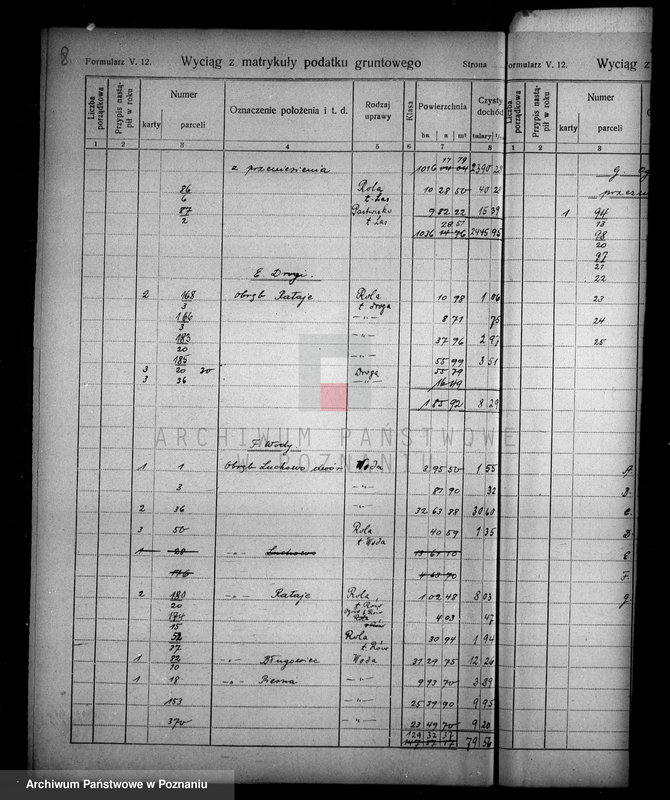 8
Formularz V. 12. Wyciąg z matrykuły podatku gruntowego Strona
Liczba porządkowa Przypis nastąpił w roku Numer karty parceli Oznaczenie położenia i t. d. Rodzaj uprawy Klasa Powierzchnia ha a m² Czysty dochód talary 1/10
1 2 3 4 5 6 7 8
17 79
z przeniesienia 1016 2390 28
86 Rola 10 28 50 40 28
6 t. Las
87 Pastwisko 9 82 22 15 39
2 t. Las
28 51
1036 2445 95
E. Drogi.
2 168 obręb Rataje Rola 10 98 1 06
3 t. droga
166 — „ — 8 71 75
3
183 — „ — 37 96 2 97
20
185 — „ — 55 99 3 51
3 20 Droga 55 79
3 36 — „ — 16 49
1 85 92 8 29
ARCHIWUM PAŃSTWOWE
W POZNANIU
F. Wody
1 1 Obręb Luchowo dwór Woda 2 95 50 1 55
3 — „ — 87 90 32
2 36 — „ — 32 63 88 30 60
3 50 Rola 40 59 1 35
t. Woda
1 28 — „ — Luchowo 13 61 10
176 4 63 70
2 180 — „ — Rataje Rola 1 02 48 8 03
20 t. Rów
174 4 03 47
15
52 Rola 30 94 1 94
37 t. Rów
1 82 — „ — Długowiec Woda 31 29 75 12 26
10
1 18 — „ — — „ — 9 93 70 3 89
153 — „ — 25 39 90 9 95
370 — „ — 23 49 70 9 20
129 32 37
79 56
Formularz V. 12. Wyciąg z
Liczba porządkowa Przypis nastąpił w roku Numer karty parceli
1 2 3
1 94
13
98
20
97
21
22
23
24
25
A.
B.
C.
D.
E.
F.
G
Archiwum Państwowe w Poznaniu